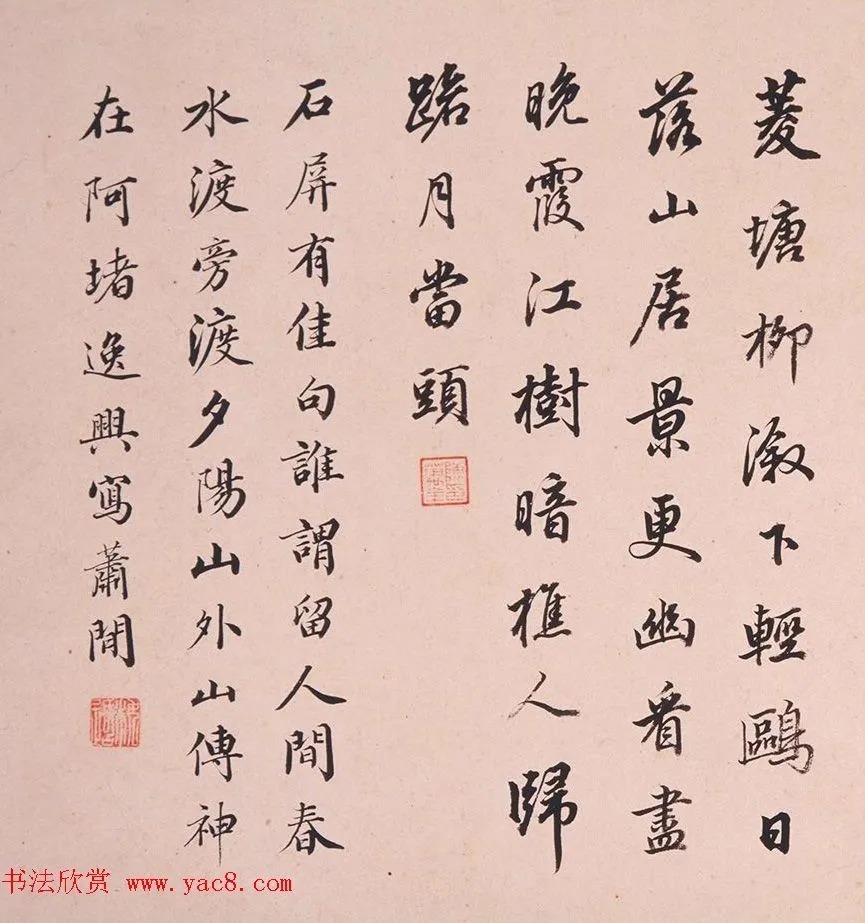 菱塘柳溆下輕鷗日
落山居景更幽看盡
晚霞江樹暗樵人歸
踏月當頭
石屏有佳句誰謂留人間春
水渡旁渡夕陽山外山傳神
在阿堵逸興寫蕭閒
书法欣赏 www.yac8.com